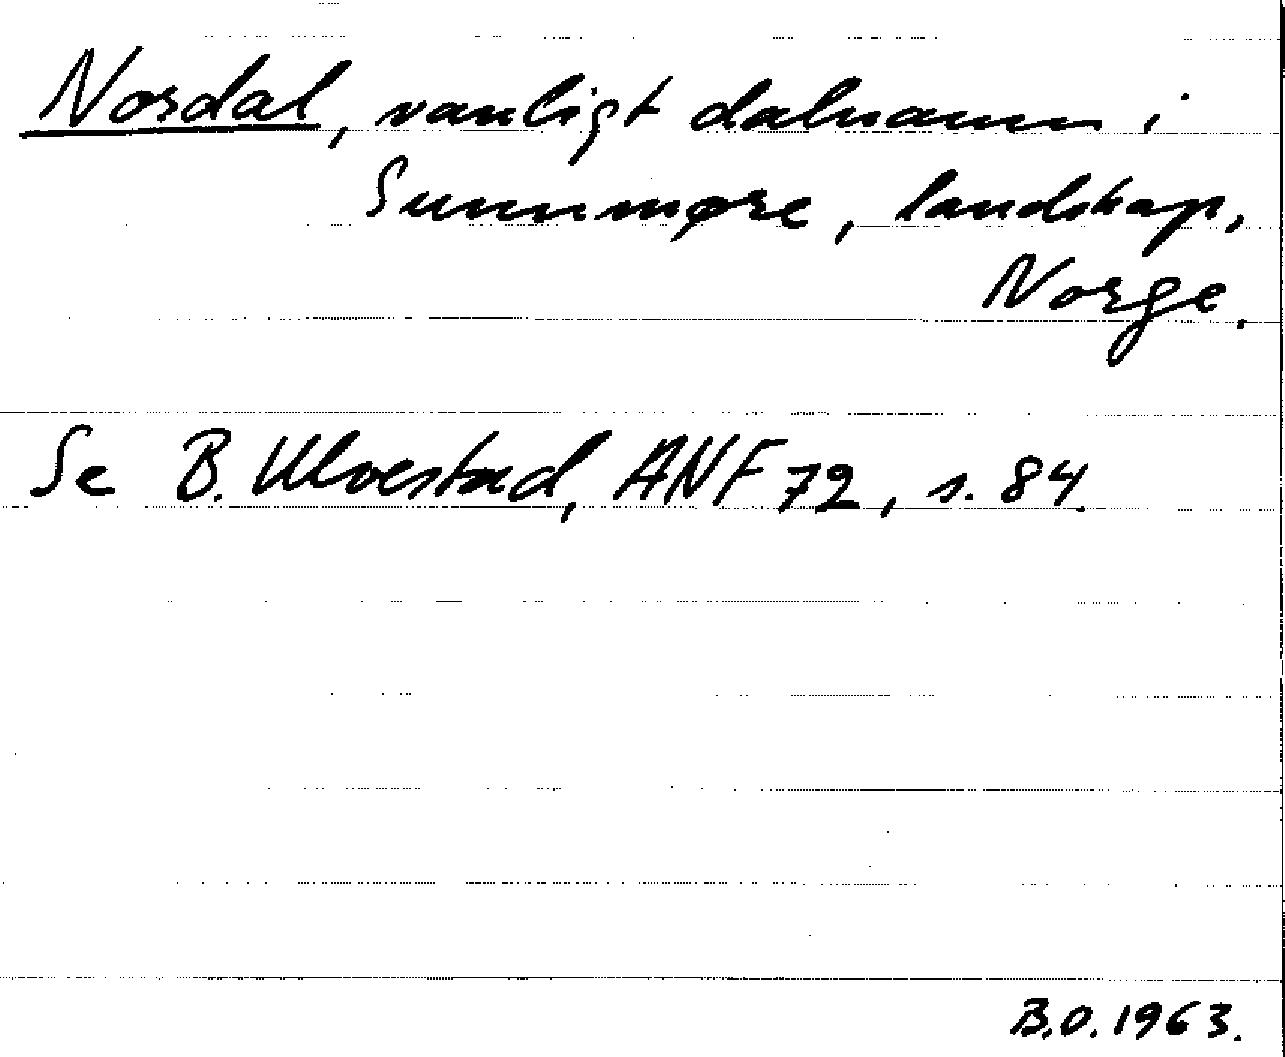 Nordal, vanligt dalnamn i
Sunnmøre, landskap,
Norge.
Se B. Ulvestad, ANF 72, s. 84.
B.O. 1963.